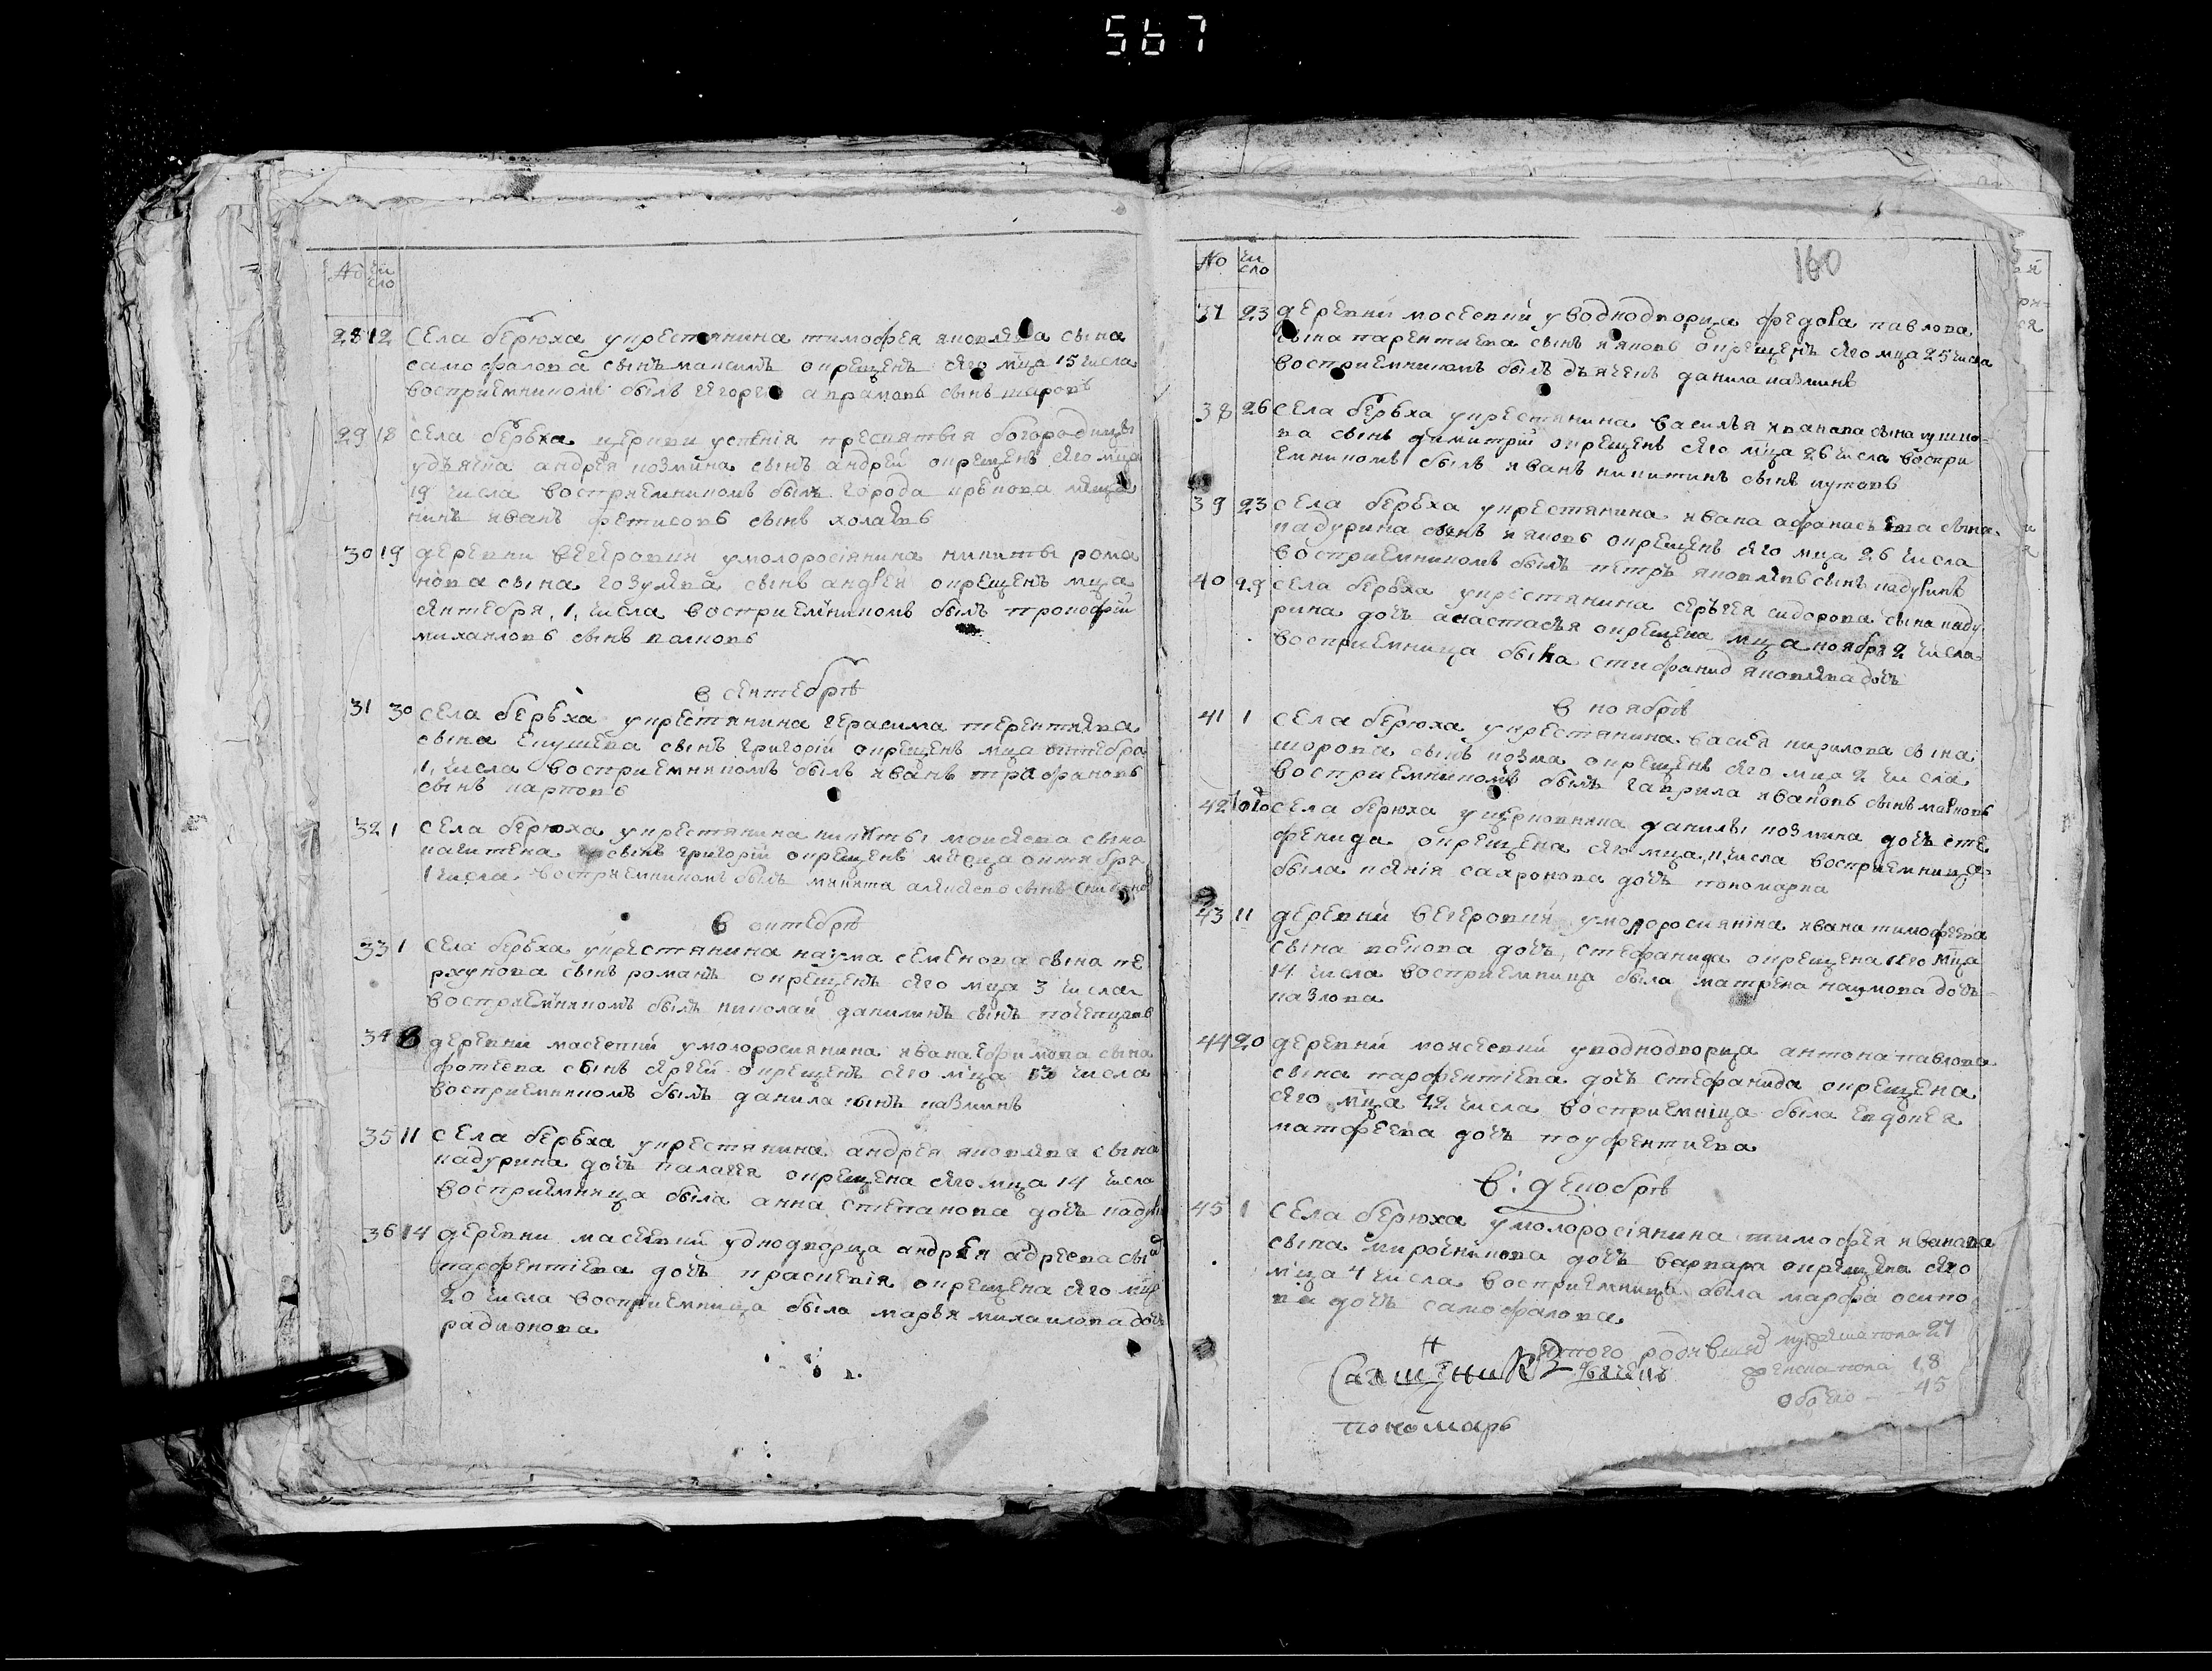 567
№ чи
сло
28 12 села берюха укрестянина тимофея яковлева сына
самофалова сынъ максимъ окрещенъ сего мца 15 числа
восприемникомъ былъ егоре аврамовъ сынъ шаровъ
29 18 села берьха церкви успенія пресвятыя богородицы
удьячка андрея козмина сынъ андреи окрещенъ сего мца
19 числа восприемникомъ былъ города мещя
нинъ иванъ фетисовъ сынъ
30 19 деревни вегеровки умолоросіянина никиты рома
нова сына гозулева сынъ андрей окрещенъ мца
сентебря 1 числа восприемникомъ былъ прокофій
михаиловъ сынъ волковъ
в сентебрѣ
31 30 села берьха укрестянина герасима терентиева
сына сынъ григоріи окрещенъ мца октебра
1 числа восприемникомъ былъ иванъ трафановъ
сынъ карповъ
32 1 села берюха укрестянина никиты моисеева сына
сынъ григоріи окрещенъ месца октября
1 числа восприемникомъ былъ микита алексеевъ сынъ
в октебрѣ
33 1 села берьха укрестянина наума семенова сына пе
рхунова сынъ романъ окрещенъ сего мца 3 числа
восприемникомъ былъ николаи данилинъ сынъ
34 8 деревни масеевки умолоросиянина ивана ефимова сына
фотеева сынъ сергей окрещенъ сего мца 13 числа
восприемникомъ былъ данила сынъ казминъ
35 11 села берьха укрестянина андрея яковлева сына
кадурина дочь палагея окрещена сего мца 14 числа
восприемница была анна степанова дочь
36 14 деревни масеевки уднодворца андрея адреева
парфентіева дочь праскевія окрещена сего мца
20 числа восприемница была марья михаилова дочь
радионова
№ чи
сло
160
37 23 деревни мосеевки уводнодворца федора павлова
сына парентиева сынъ яковъ окрещенъ сего мца 25 числа
восприемникомъ былъ дьячекъ данила казминъ
38 26 села берьха укрестянина василья иванова сына
ва сынъ димитріи окрещенъ сего мца 26 числа воспри
емникомъ былъ иванъ никитинъ сынъ шутовъ
39 23 села берьха укрестянина ивана афанасьева сына
кадурина сынъ яковъ окрещенъ сего мца 26 числа
восприемникомъ былъ петръ яковлевъ сынъ кадуринъ
40 29 села берьха укрестянина серьгея сидорова сына каду
рина дочь анастасья окрещена мца ноября 2 числа
восприемница была стифанид яковлева дочь
в ноябрѣ
41 1 села берюха укрестянина василя кирилова сына
шорова сынъ козма окрещенъ сего мца 2 числа
восприемникомъ былъ гаврила ивановъ сынъ марковъ
42 10 села берюха уцерковника данилы козмина дочь сте
фенида окрещена сего мца 11 числа восприемница
была ксенія сахронова дочь пономарка
43 11 деревни вегеровки умолоросияніна ивана тимофеева
сына волкова дочь стефанида окрещена сего мца
14 числа восприемница была матрена наумова дочь
казлова
44 20 деревни моисеевки уводнодворца антона павлова
сына парфентіева дочь стефанида окрещена
сего мца 22 числа восприемніца была евдокея
матфеева дочь поуфентиева
в декобрѣ
45 1 села берюха умолоросіянина тимофея иванова
сына мирочникова дочь варвара окрещена сего
мца 4 числа восприемница была марфа осипо
ва дочь самофалова
итого родившихся мужеска пола 27
женска пола 18
обоего 45
пономарь